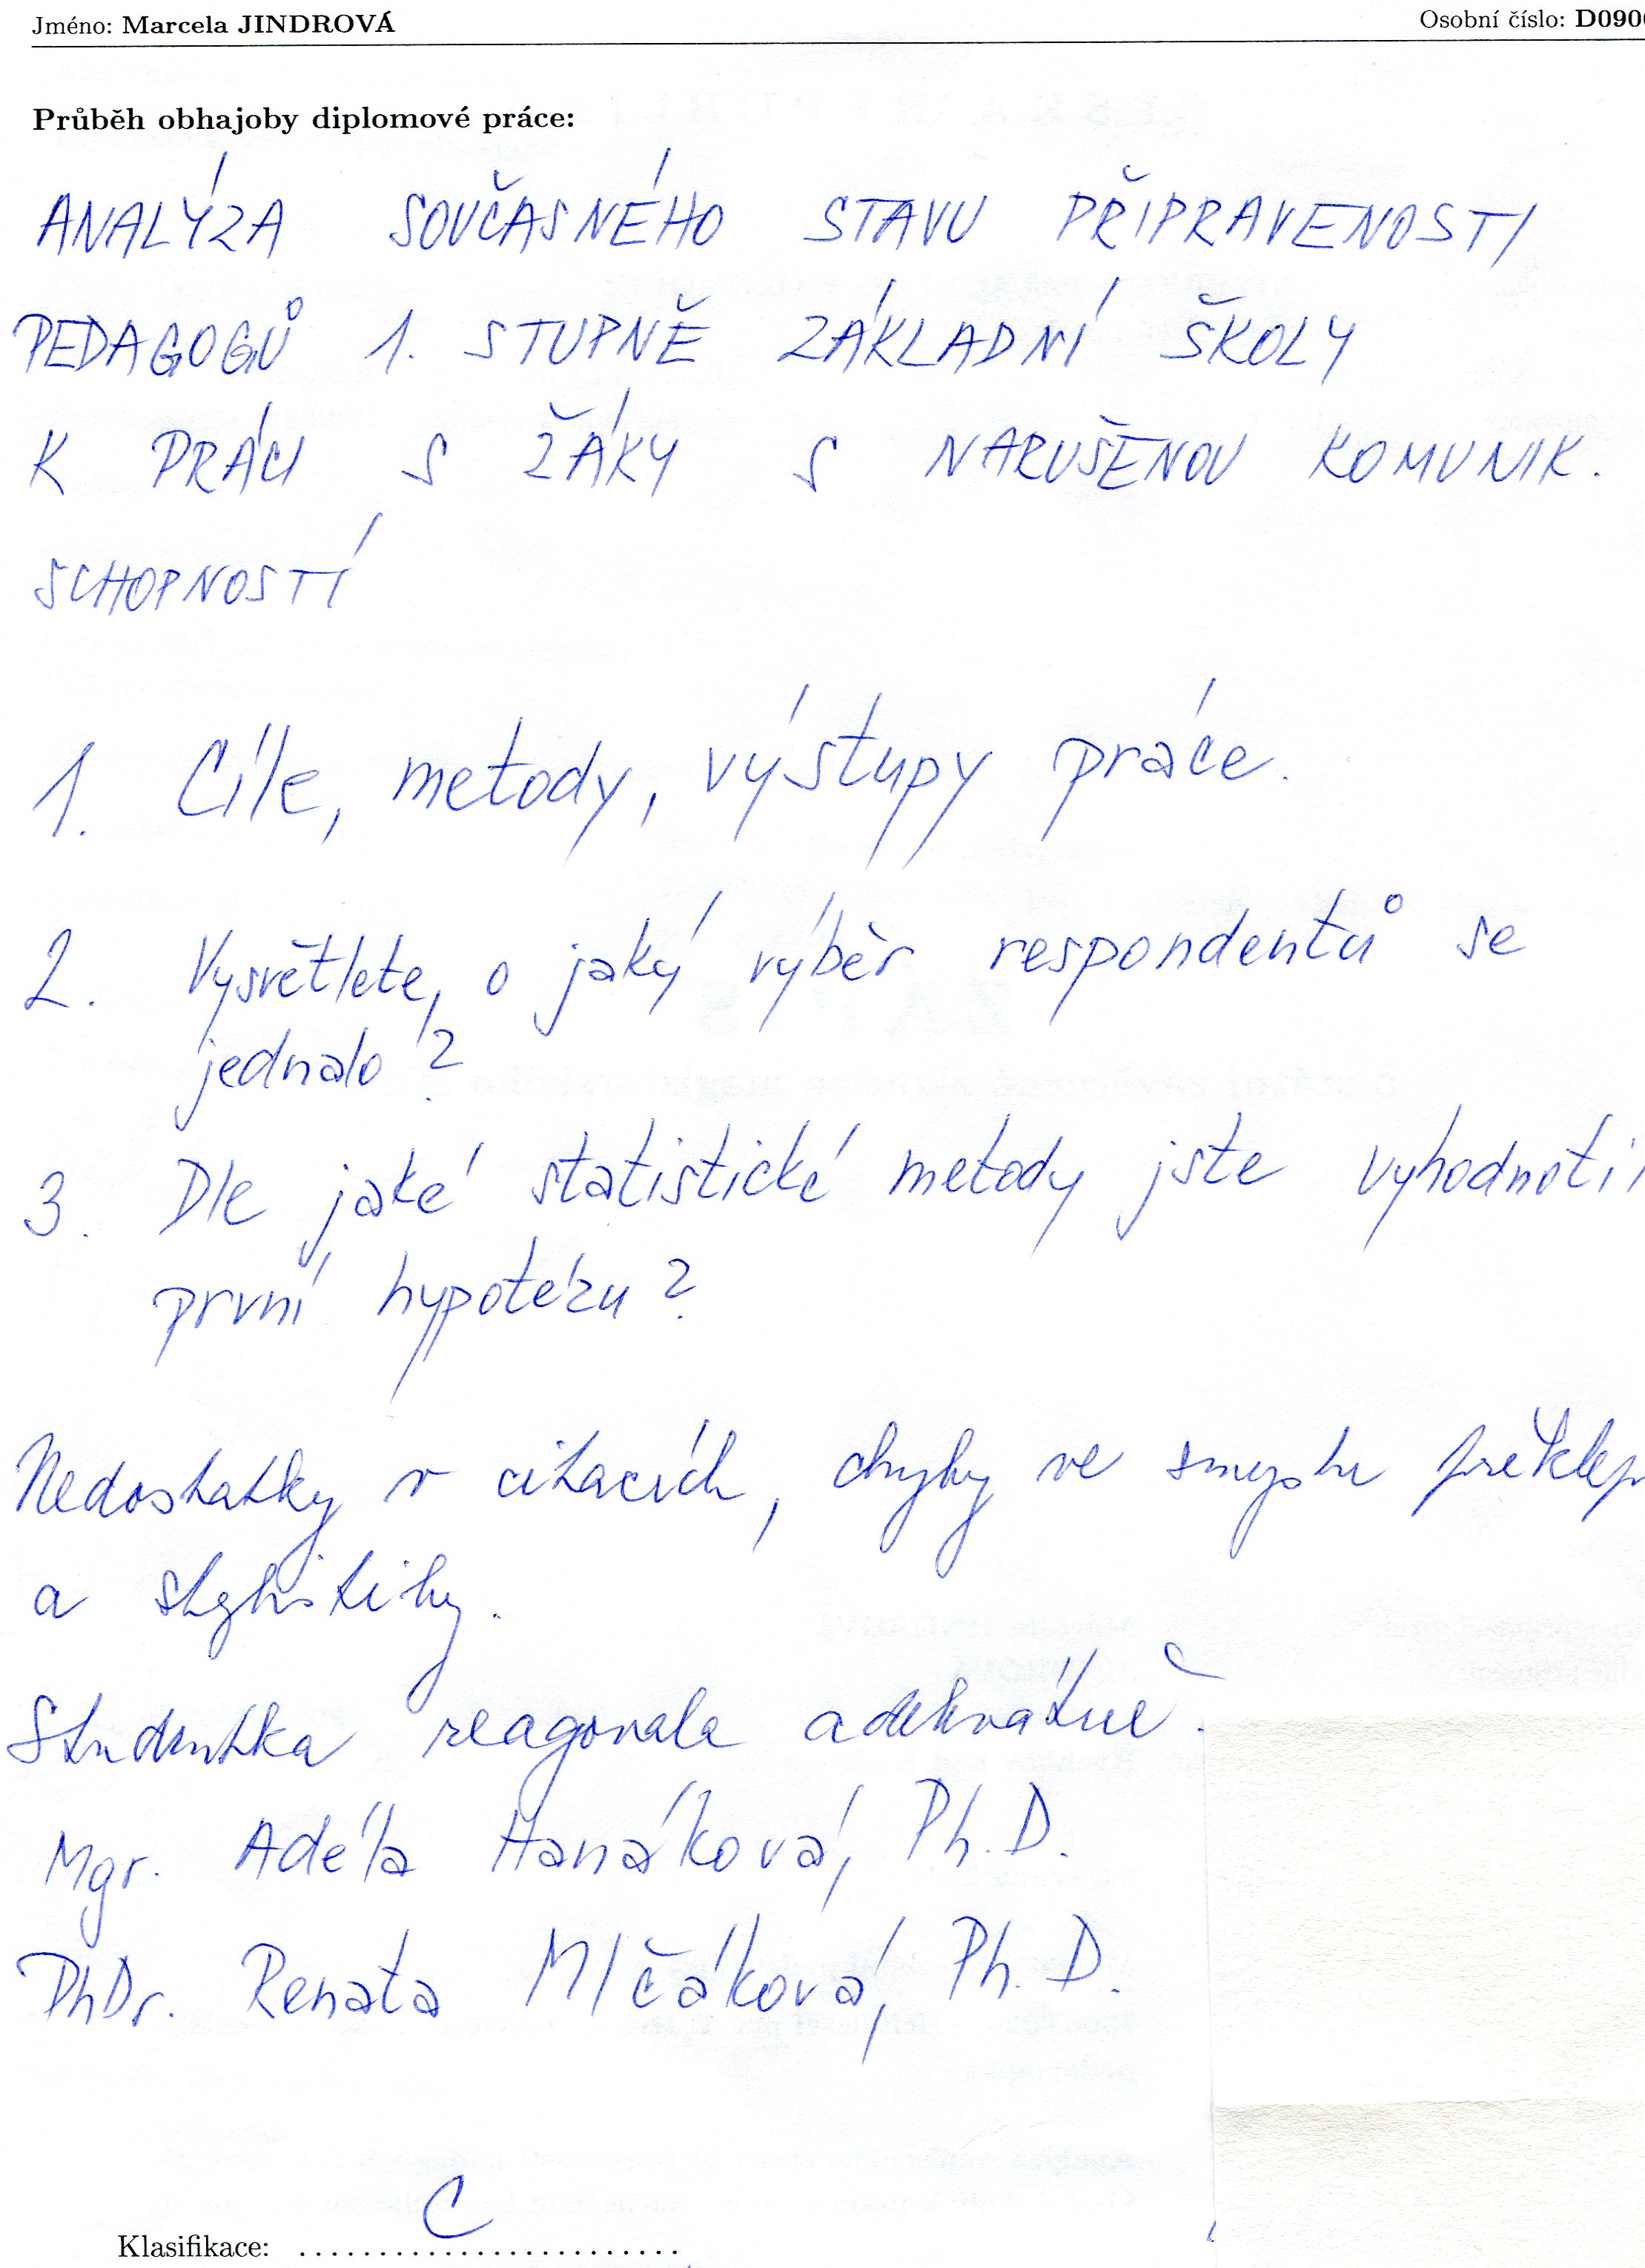 Jméno: Marcela JINDROVÁ Osobní číslo: D090
Průběh obhajoby diplomové práce:
ANALÝZA SOUČASNÉHO STAVU PŘIPRAVENOSTI
PEDAGOGŮ 1. STUPNĚ ZÁKLADNÍ ŠKOLY
K PRÁCI S ŽÁKY S NARUŠENOU KOMUNIK.
SCHOPNOSTÍ
1. Cíle, metody, výstupy práce.
2. Vysvětlete, o jaký výběr respondentů se
jednalo?
3. Dle jaké statistické metody jste vyhodnoti
první hypotézu?
Nedostatky v citacích, chyby ve smyslu překlep
a stylistiky.
Studentka reagovala adekvátně.
Mgr. Adéla Hanáková, Ph.D.
PhDr. Renata Mlčáková, Ph.D.
C
Klasifikace: ........................